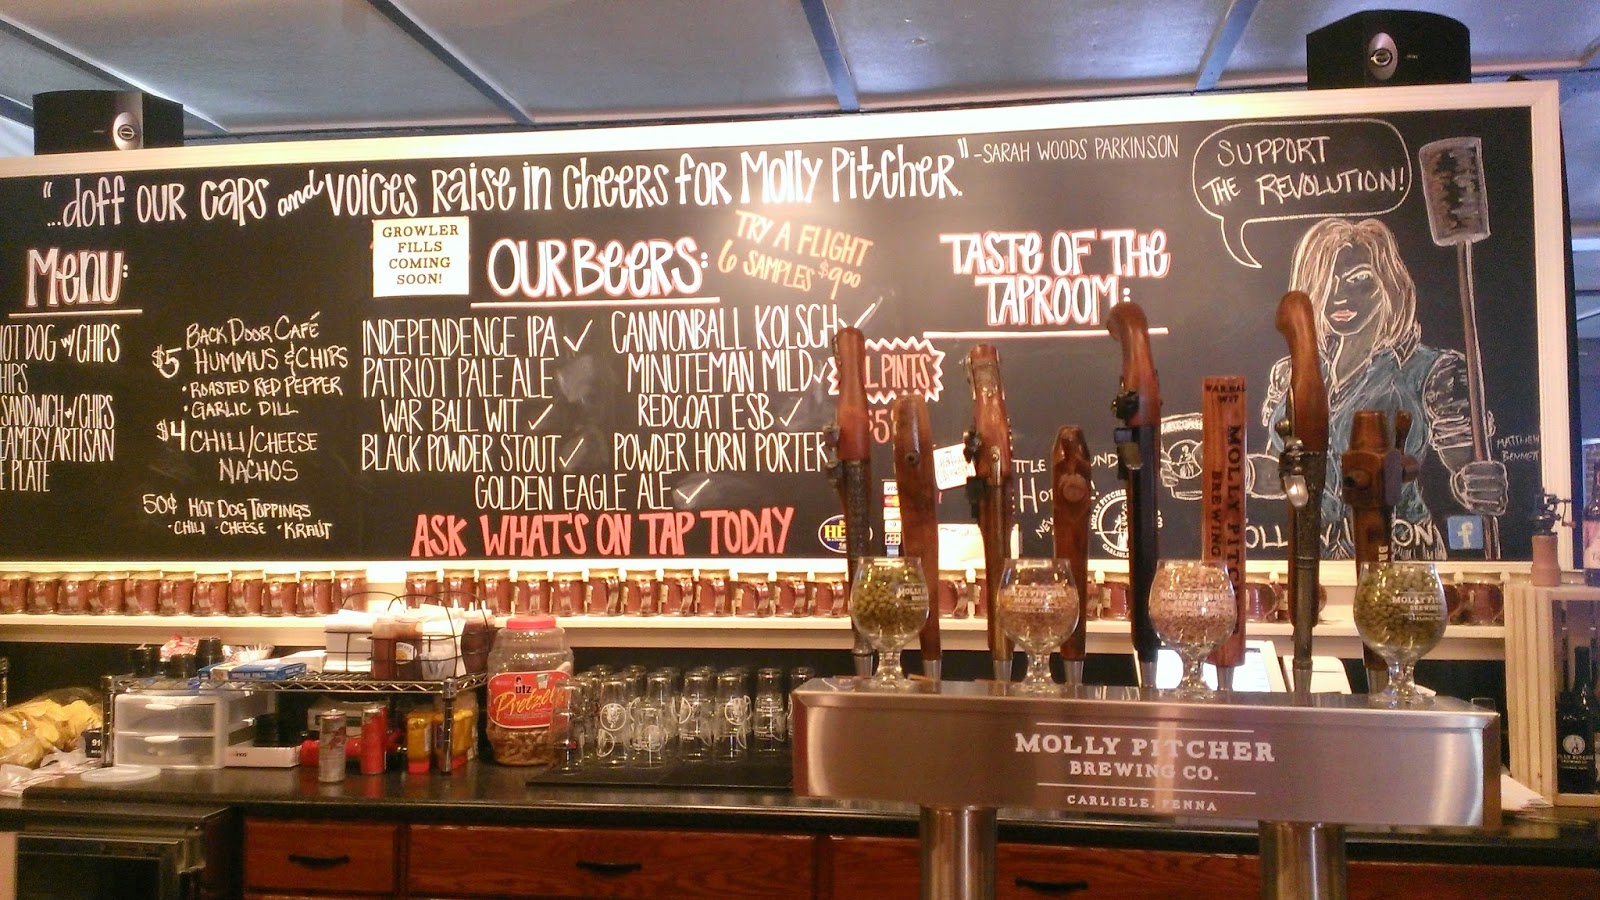 "...doff our caps and voices raise in cheers for Molly Pitcher." -SARAH WOODS PARKINSON
SUPPORT
THE REVOLUTION!
Menu:
HOT DOG w/ CHIPS
CHIPS
SANDWICH w/ CHIPS
ARTISAN
PLATE
BACK DOOR CAFÉ
$5 HUMMUS & CHIPS
• ROASTED RED PEPPER
• GARLIC DILL
$4 CHILI/CHEESE
NACHOS
50¢ HOT DOG TOPPINGS
• CHILI • CHEESE • KRAUT
GROWLER
FILLS
COMING
SOON!
OUR BEERS:
TRY A FLIGHT
6 SAMPLES $9.00
INDEPENDENCE IPA ✓
PATRIOT PALE ALE
WAR BALL WIT ✓
BLACK POWDER STOUT ✓
CANNONBALL KOLSCH ✓
MINUTEMAN MILD ✓
REDCOAT ESB ✓
POWDER HORN PORTER
GOLDEN EAGLE ALE ✓
ASK WHAT'S ON TAP TODAY
PINTS
$5
TASTE OF THE
TAPROOM:
MATTHEW
BENNETT
WAR BAL
WIT
MOLLY PITCH
BREWING
MOLLY PITCHER
CARLISLE
utz
Pretzel
MOLLY PITCHER
BREWING CO.
CARLISLE, PENNA